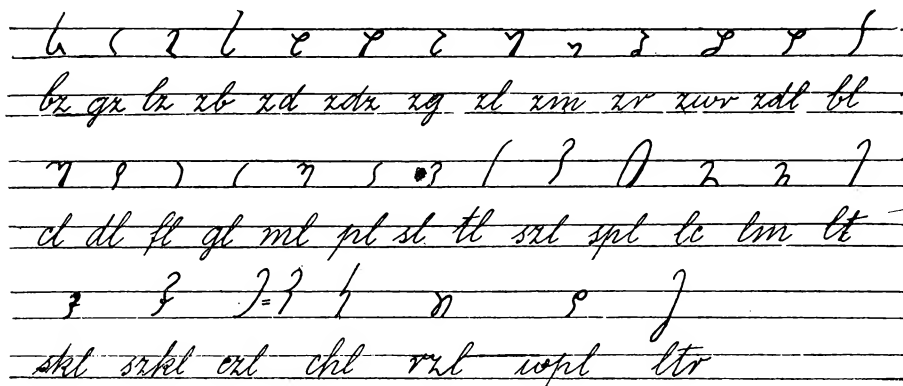 bz gz lz zb zd zdz zg zl zm zr zwr zdl bl
cl dl fl gl ml pl sl tl szl spl lc lm lt
skl szkl czl chl rzl wpl ltr